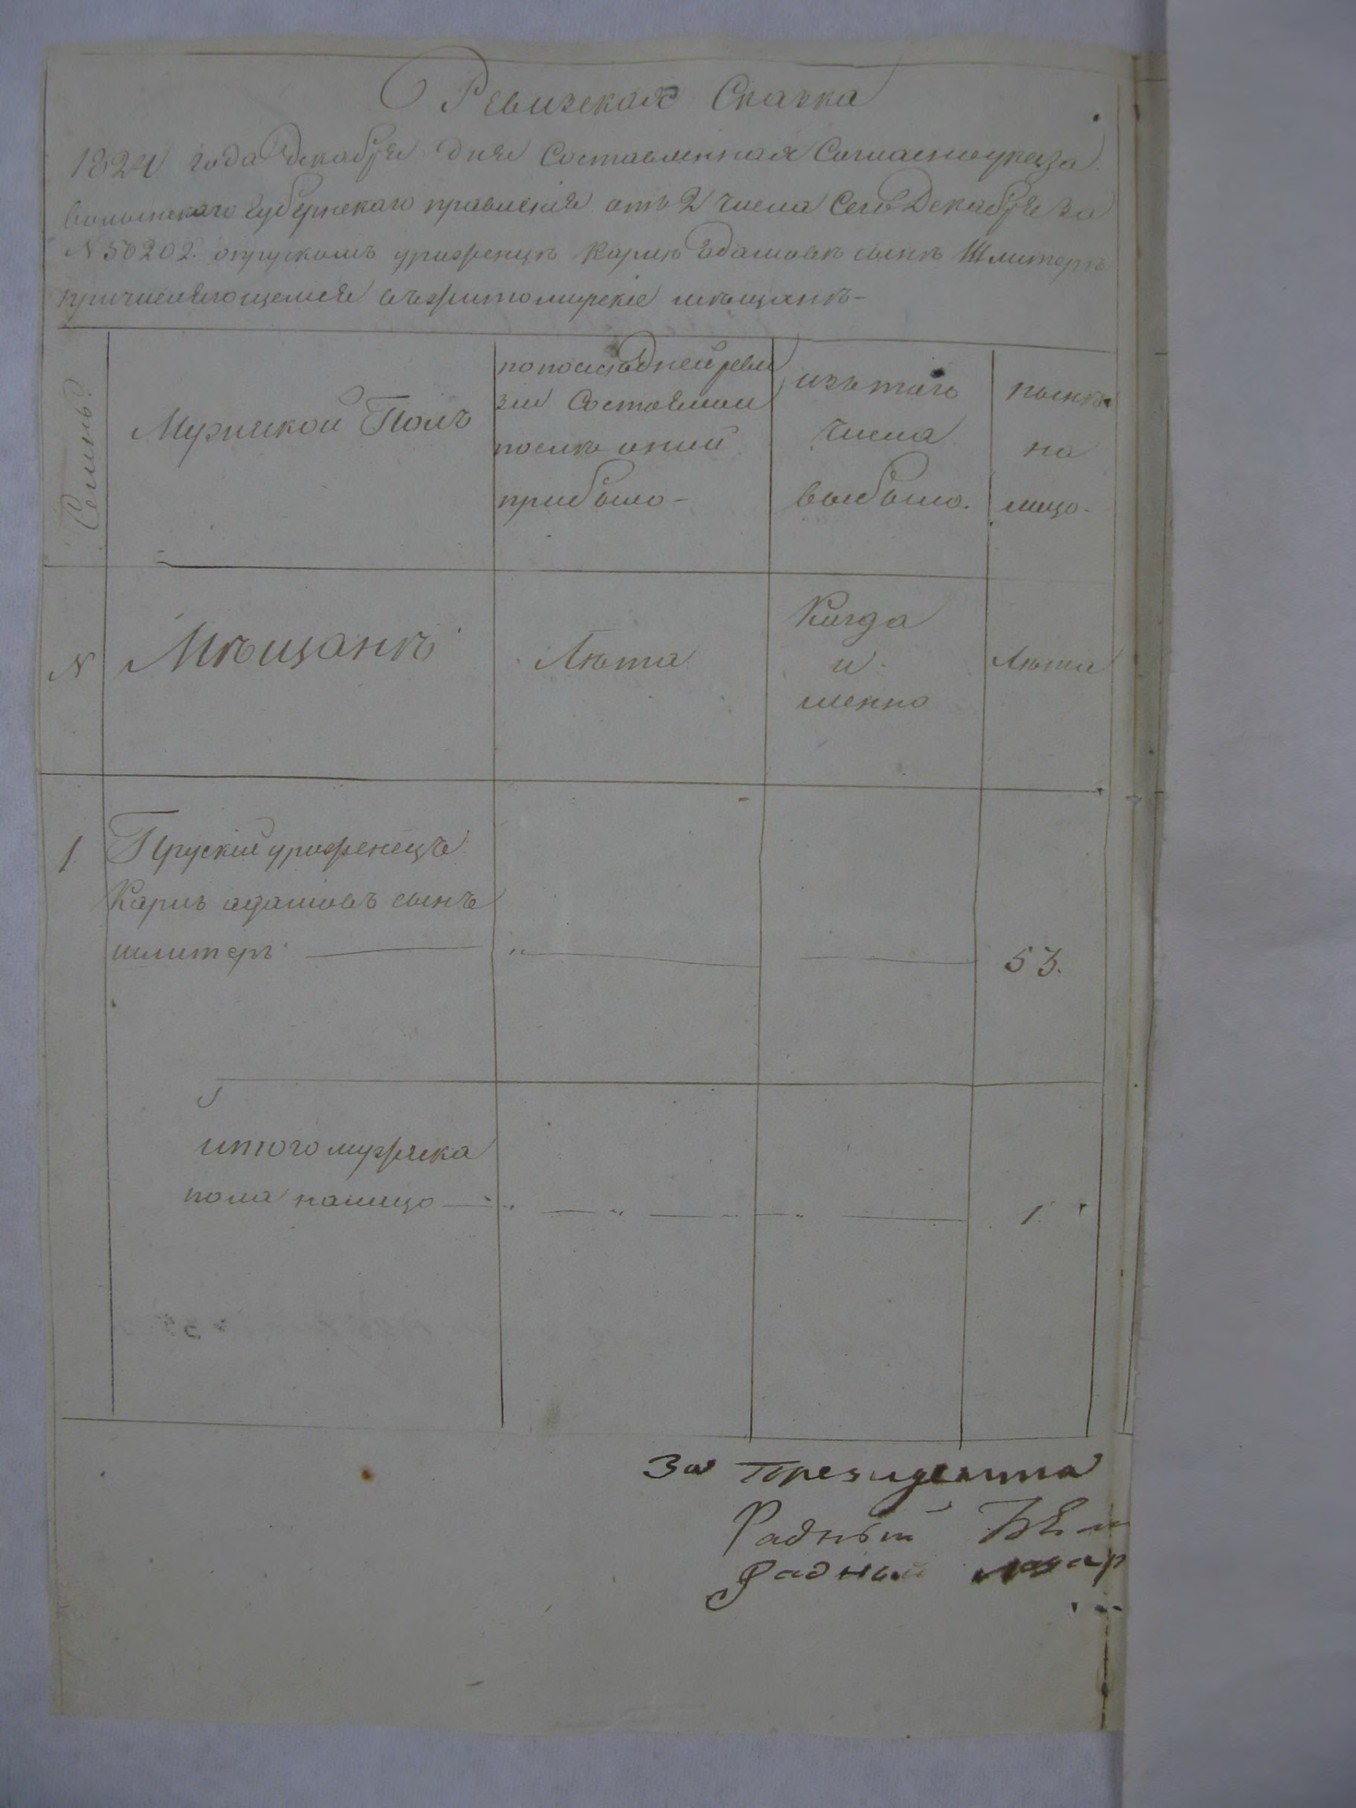 Ревизская Сказка
1824 года декабря дня Составленная Согласно указа
волынскаго губернскаго правления отъ 2 числа Сего Декабря за
N 50202. опрускомъ уроженце Карле адамове сыне Шлитере
причисляющемся въ житомирские мещане-
Семьи
Мужеской Полъ
по последней реви
зии Состояло и
после оной
прибыло-
изъ того
числа
выбыло.
ныне
на
лицо-
N
Мещане
Лета
Когда
и
менно
Лета
1
Пруский уроженецъ
Карлъ адамовъ сынъ
шлитеръ
53.
итого мужеска
пола налицо
1.
За Президента
Радный
Радный